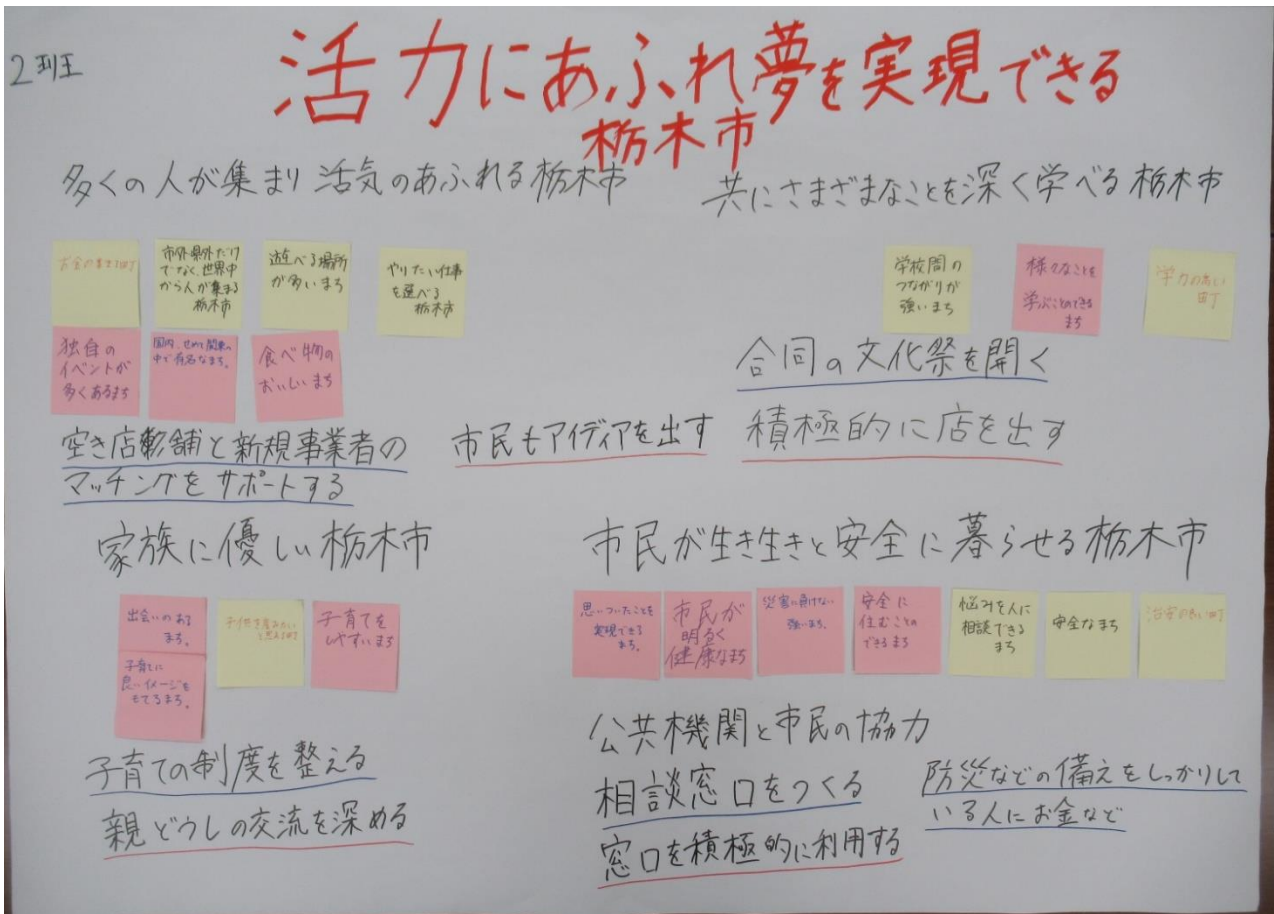 2班
活力にあふれ夢を実現できる
栃木市
多くの人が集まり活気のあふれる栃木市
お金の集まる町
市外県外だけ
でなく、世界中
から人が集まる
栃木市
遊べる場所
が多いまち
やりたい仕事
を選べる
栃木市
独自の
イベントが
多くあるまち
国内、せめて関東の
中で有名なまち。
食べ物の
おいしいまち
空き店舗と新規事業者の
マッチングをサポートする
市民もアイディアを出す
共にさまざまなことを深く学べる栃木市
学校間の
つながりが
強いまち
様々なことを
学ぶことのできる
まち
学力の高い
町
合同の文化祭を開く
積極的に店を出す
家族に優しい栃木市
出会いのある
まち。
子供を産みたい
と思える町
子育てを
しやすいまち
子育てに
良いイメージを
もてるまち。
子育ての制度を整える
親どうしの交流を深める
市民が生き生きと安全に暮らせる栃木市
思いついたことを
実現できる
まち。
市民が
明るく
健康なまち
災害に負けない
強いまち。
安全に
住むことの
できるまち
悩みを人に
相談できる
まち
安全なまち
治安の良い町
公共機関と市民の協力
相談窓口をつくる
窓口を積極的に利用する
防災などの備えをしっかりして
いる人にお金など